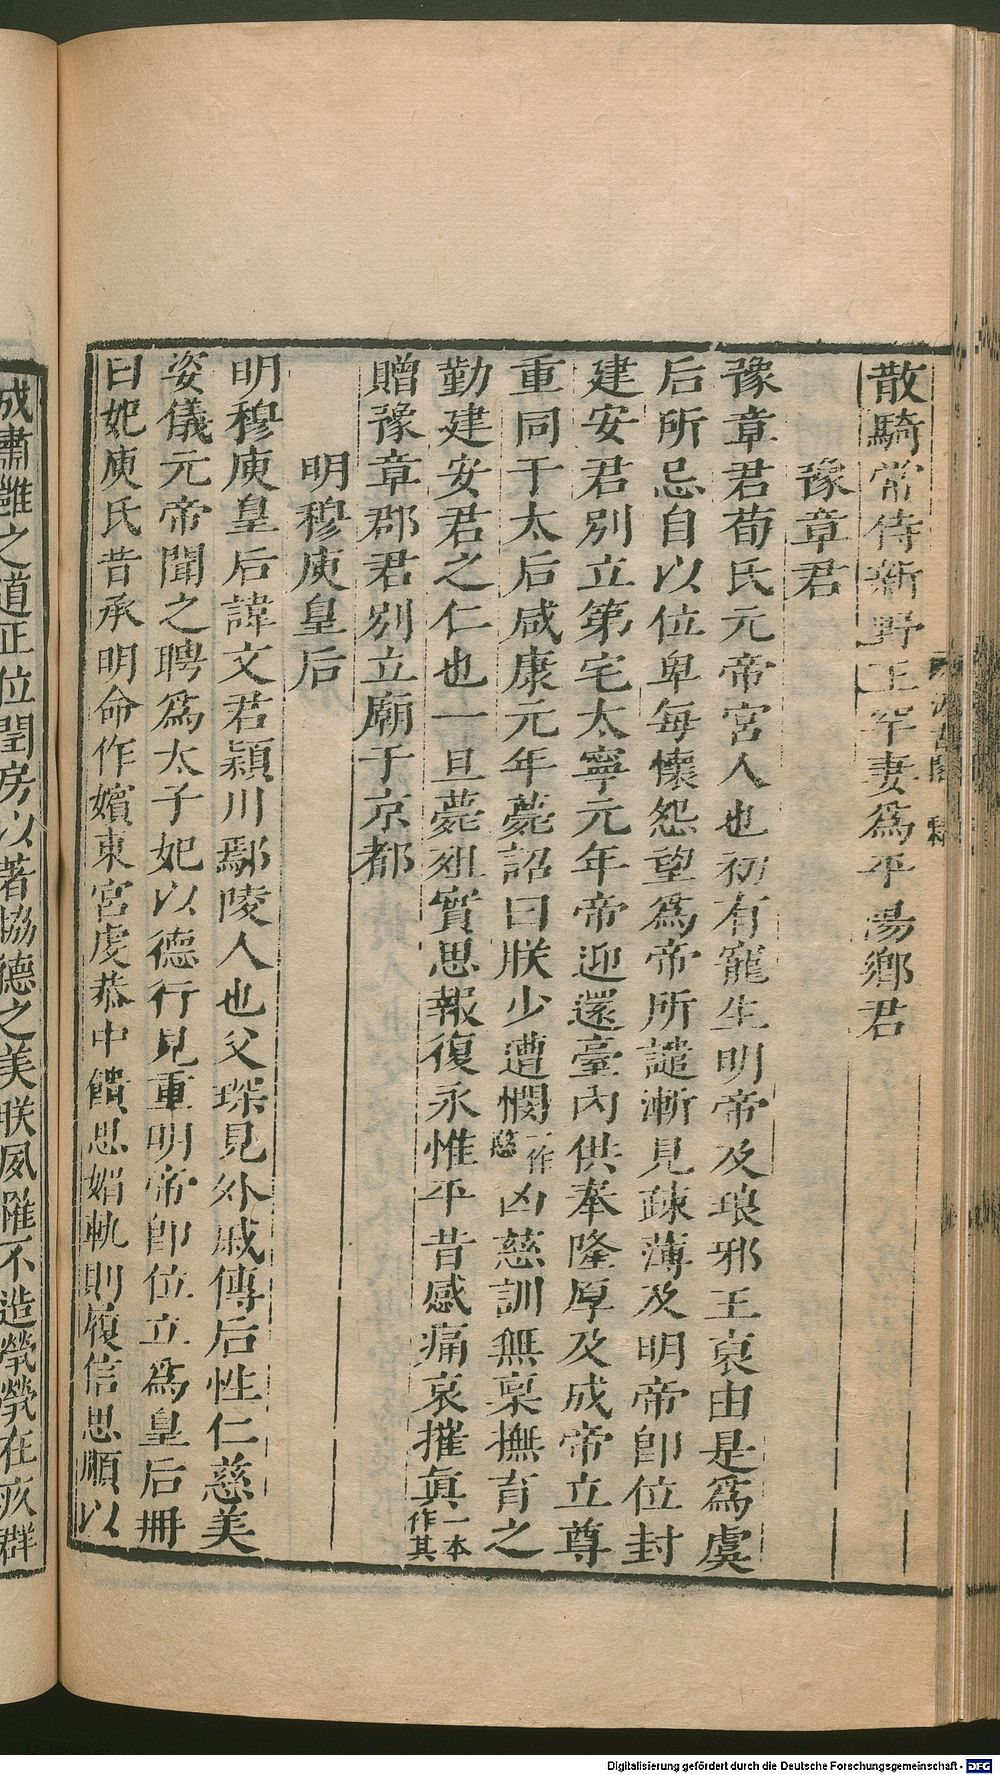 散騎常侍新野王罕妻爲平陽鄉君
豫章君
豫章君荀氏元帝宮人也初有寵生明帝及琅邪王裒由是爲虞
后所忌自以位卑每懷怨望爲帝所譴漸見疎薄及明帝卽位封
建安君別立第宅太寧元年帝迎還臺內供奉隆厚及成帝立尊
重同于太后咸康元年薨詔曰朕少遭憫一作愍凶慈訓無稟撫育之
勤建安君之仁也一旦薨殂實思報復永惟平昔感痛哀摧眞一本作其
贈豫章郡君別立廟于京都
明穆庾皇后
明穆庾皇后諱文君潁川鄢陵人也父琛見外戚傳后性仁慈美
姿儀元帝聞之聘爲太子妃以德行見重明帝卽位立爲皇后冊
曰妃庾氏昔承明命作嬪東宮虔恭中饋思媚軌則履信思順以
成肅雝之道正位閨房以著協德之美朕夙罹不造煢煢在疚群
Digitalisierung gefördert durch die Deutsche Forschungsgemeinschaft - DFG